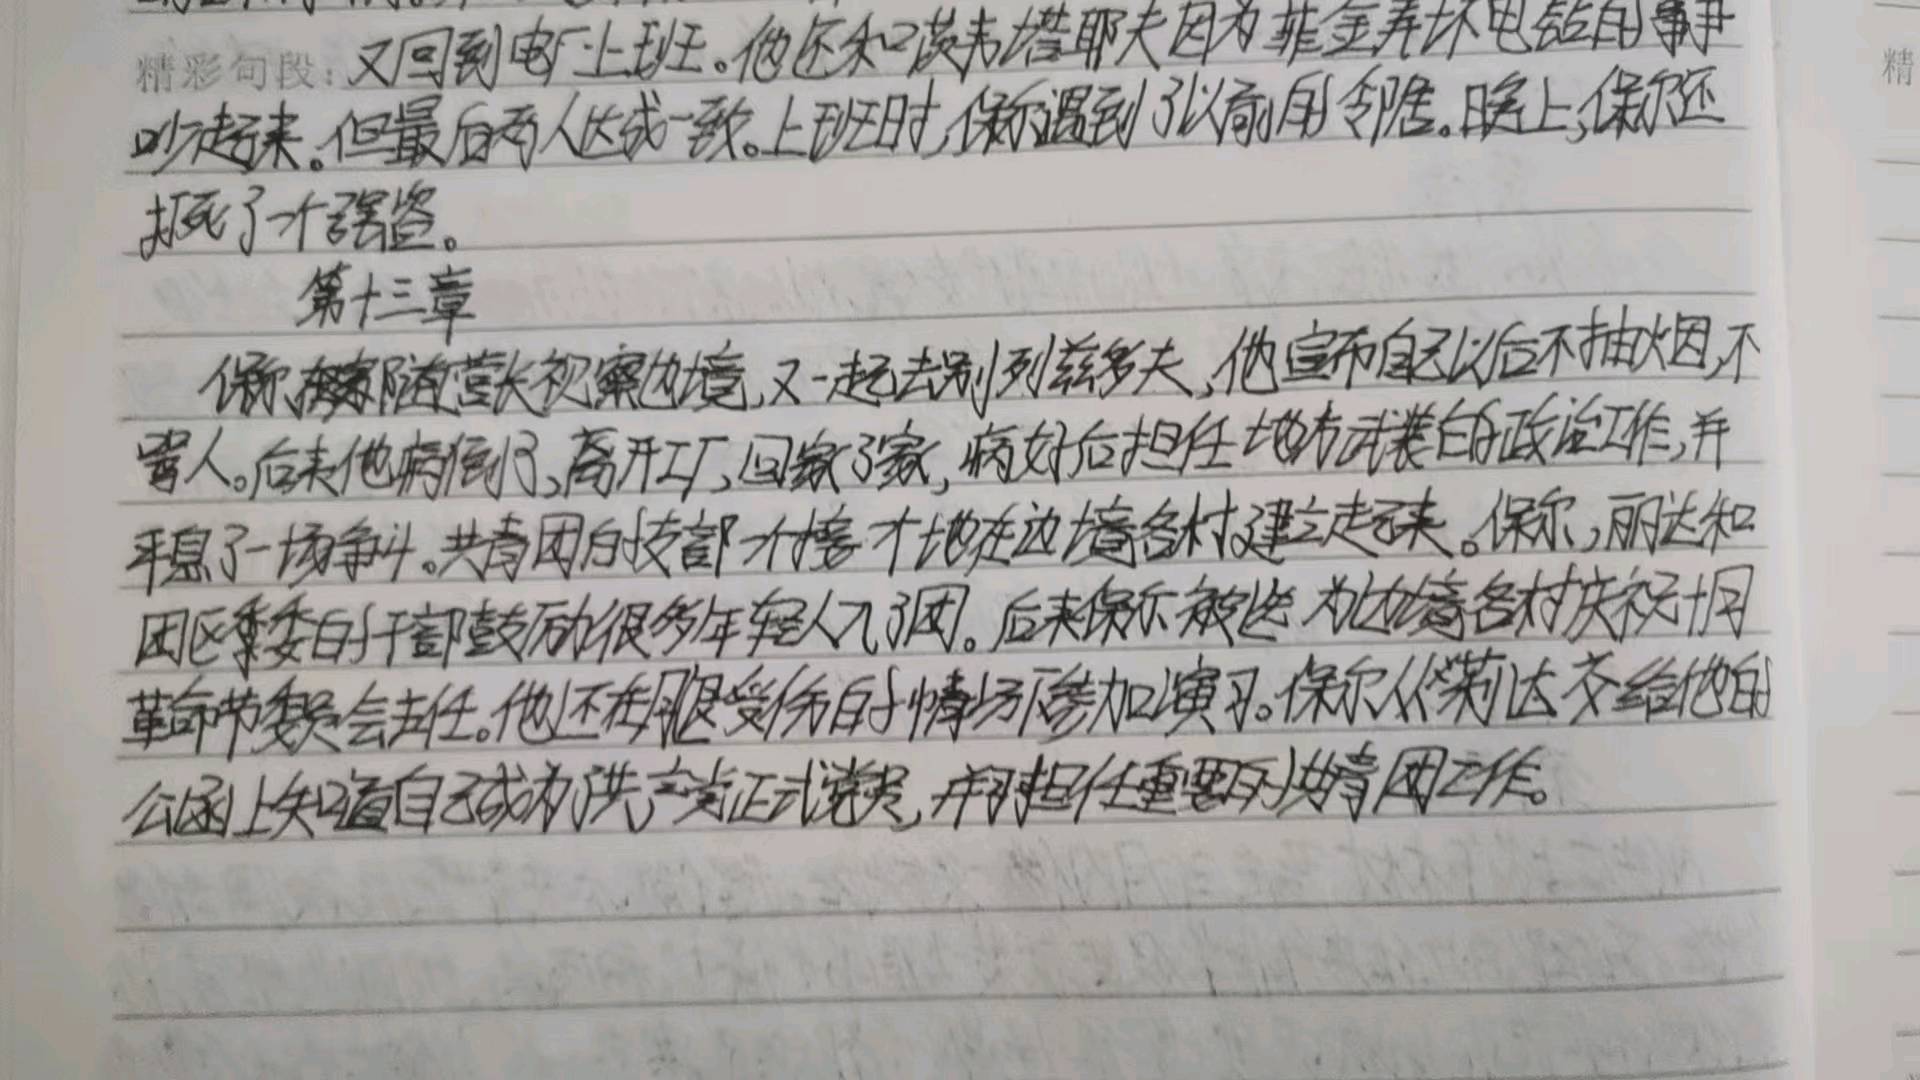 精彩句段：又回到电厂上班。他还和茨韦塔耶夫因为菲金弄坏电钻的事
吵起来。但最后两人达成一致。上班时，保尔遇到了以前的邻居。晚上，保尔还
打死了一个强盗。
第十三章
保尔随营长视察边境，又一起去别列兹多夫，他宣布自己以后不抽烟，不
骂人。后来他病倒了，离开工厂，回了家，病好后担任地方武装的政治工作，并
平息了一场争斗。共青团的支部一个接一个地在边境各村建立起来。保尔，丽达和
团区委的干部鼓励很多年轻人入了团。后来保尔被选为边境各村庆祝十月
革命节委员会主任。他还在腿受伤的情况下参加演习。保尔从莉达交给他的
公函上知道自己成为了共产党正式党员，并担任重要的共青团工作。
精